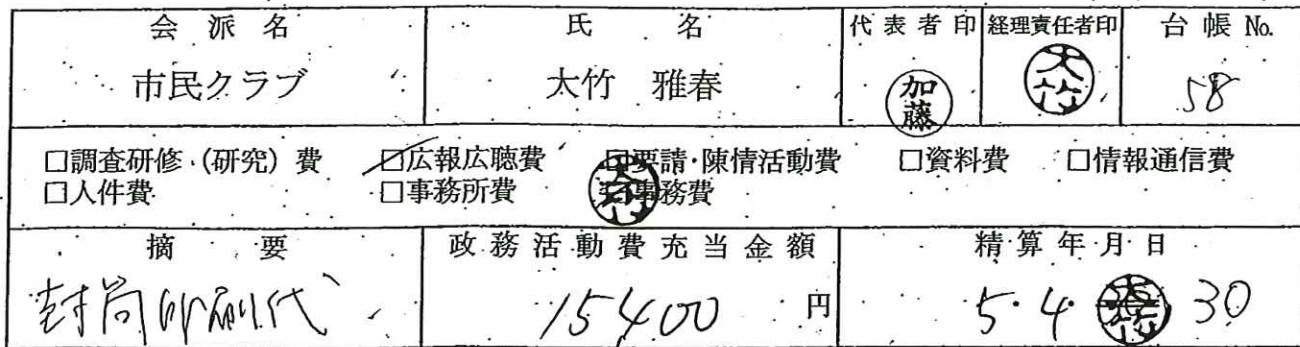 会派名 氏名 代表者印 経理責任者印 台帳 No.
市民クラブ 大竹 雅春 加藤 大竹 58
□調査研修(研究)費 □広報広聴費 □要請・陳情活動費 □資料費 □情報通信費
□人件費 □事務所費 大竹 事務費
摘要 政務活動費充当金額 精算年月日
封筒印刷代 15400 円 5.4. 大竹 30